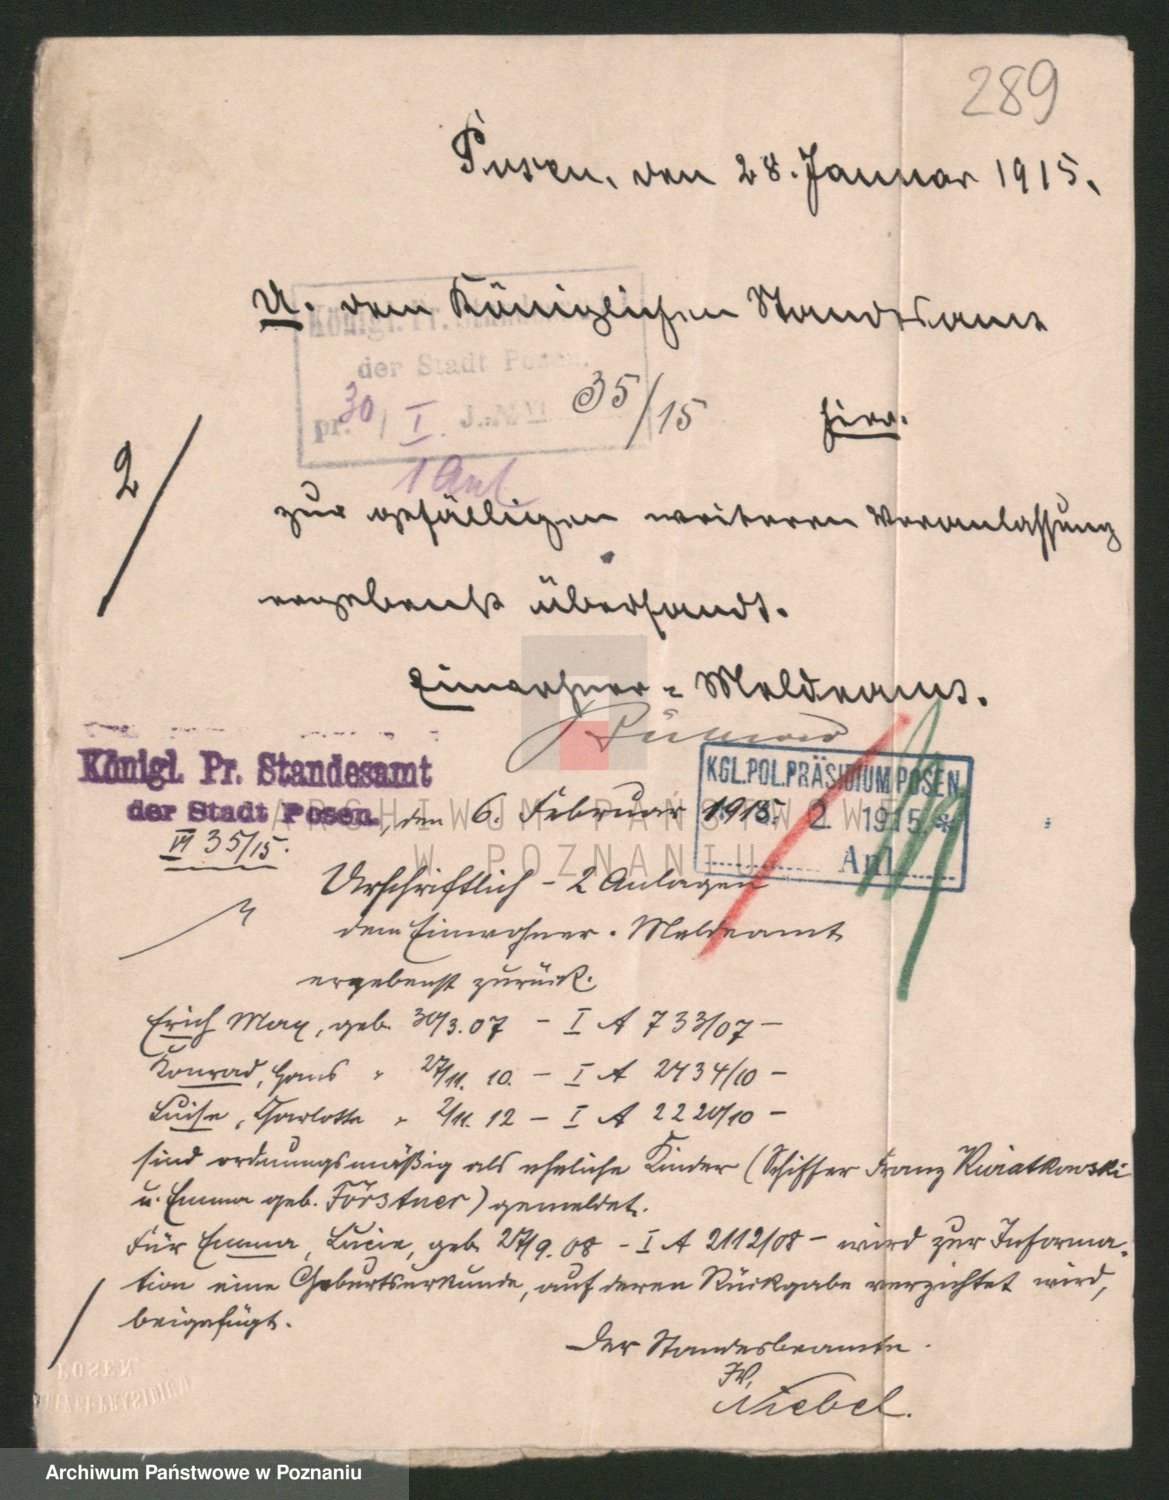 289
Posen, den 28. Januar 1915.
U. dem Königlichen Standesamt
Königl. Pr. Standesamt
der Stadt Posen.
pr. 30/I. J.-N. VI 35/15
1 Anl.
hier.
2/
zur gefälligen weiteren Veranlassung
ergebenst übersandt.
Einwohner-Meldeamt.
Königl. Pr. Standesamt
der Stadt Posen, den 6. Februar 1915.
VI 35/15.
KGL. POL. PRÄSIDIUM POSEN
2 1915 *
Anl.
Urschriftlich - 2 Anlagen
dem Einwohner-Meldeamt
ergebenst zurück.
Erich Max, geb. 30/3.07 - I A 733/07 -
Konrad, Hans " 27/11. 10. - I A 2434/10 -
Luise, Charlotte " 2/11. 12 - I A 2220/10 -
sind ordnungsmäßig als eheliche Kinder (Schiffer Franz Kwiatkowski
u. Emma geb. Förstner) gemeldet.
Für Emma, Lucie, geb. 27/9. 08 - I A 2112/08 - wird zur Informa-
tion eine Geburtsurkunde, auf deren Rückgabe verzichtet wird,
beigefügt.
Der Standesbeamte.
IV.
Niebel.
POSEN
ARCHIWUM PAŃSTWOWE
W POZNANIU
Archiwum Państwowe w Poznaniu